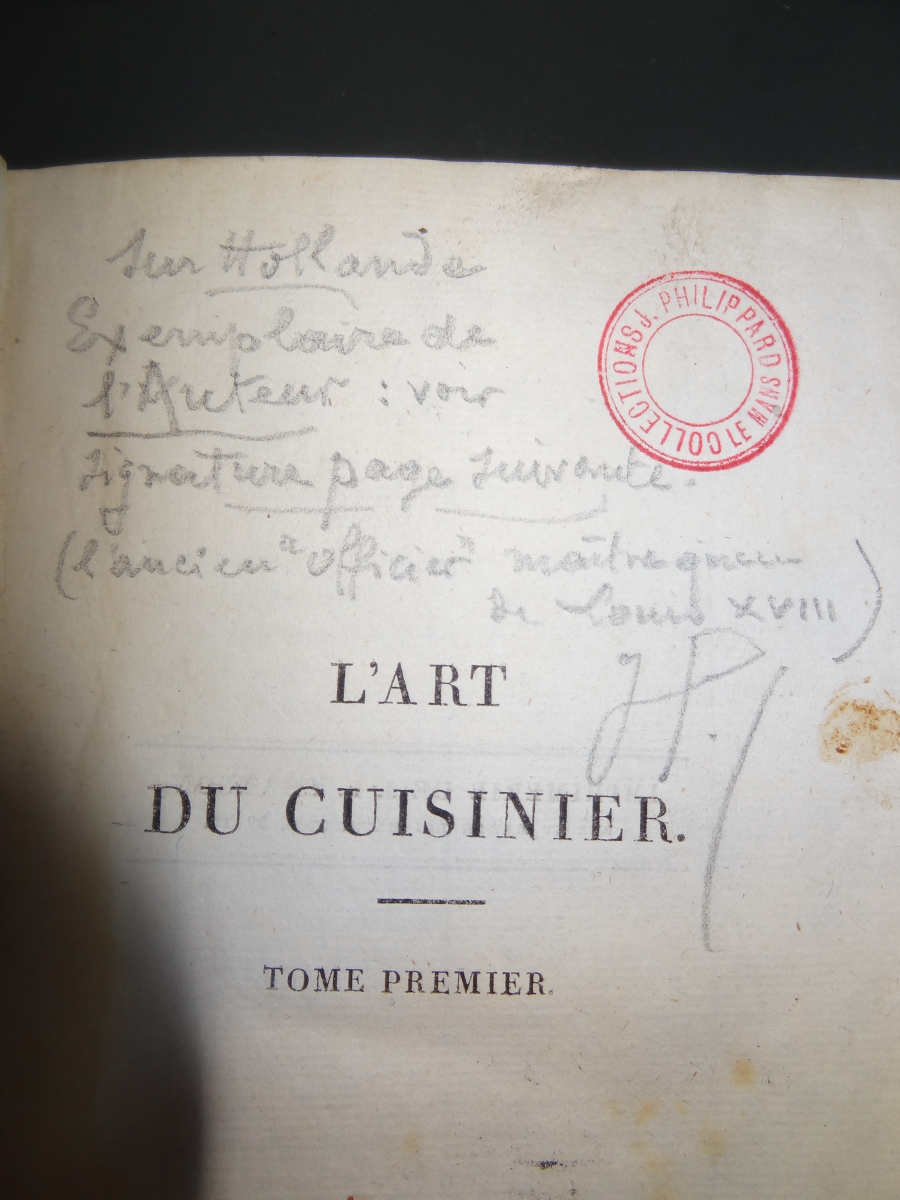 sur Hollande
Exemplaire de
l'Auteur : voir
signature page suivante.
(l'ancien "officier" maître queu
de Louis XVIII)
JP.
COLLECTIONS J. PHILIPPARD LE MANS
L'ART
DU CUISINIER.
TOME PREMIER.